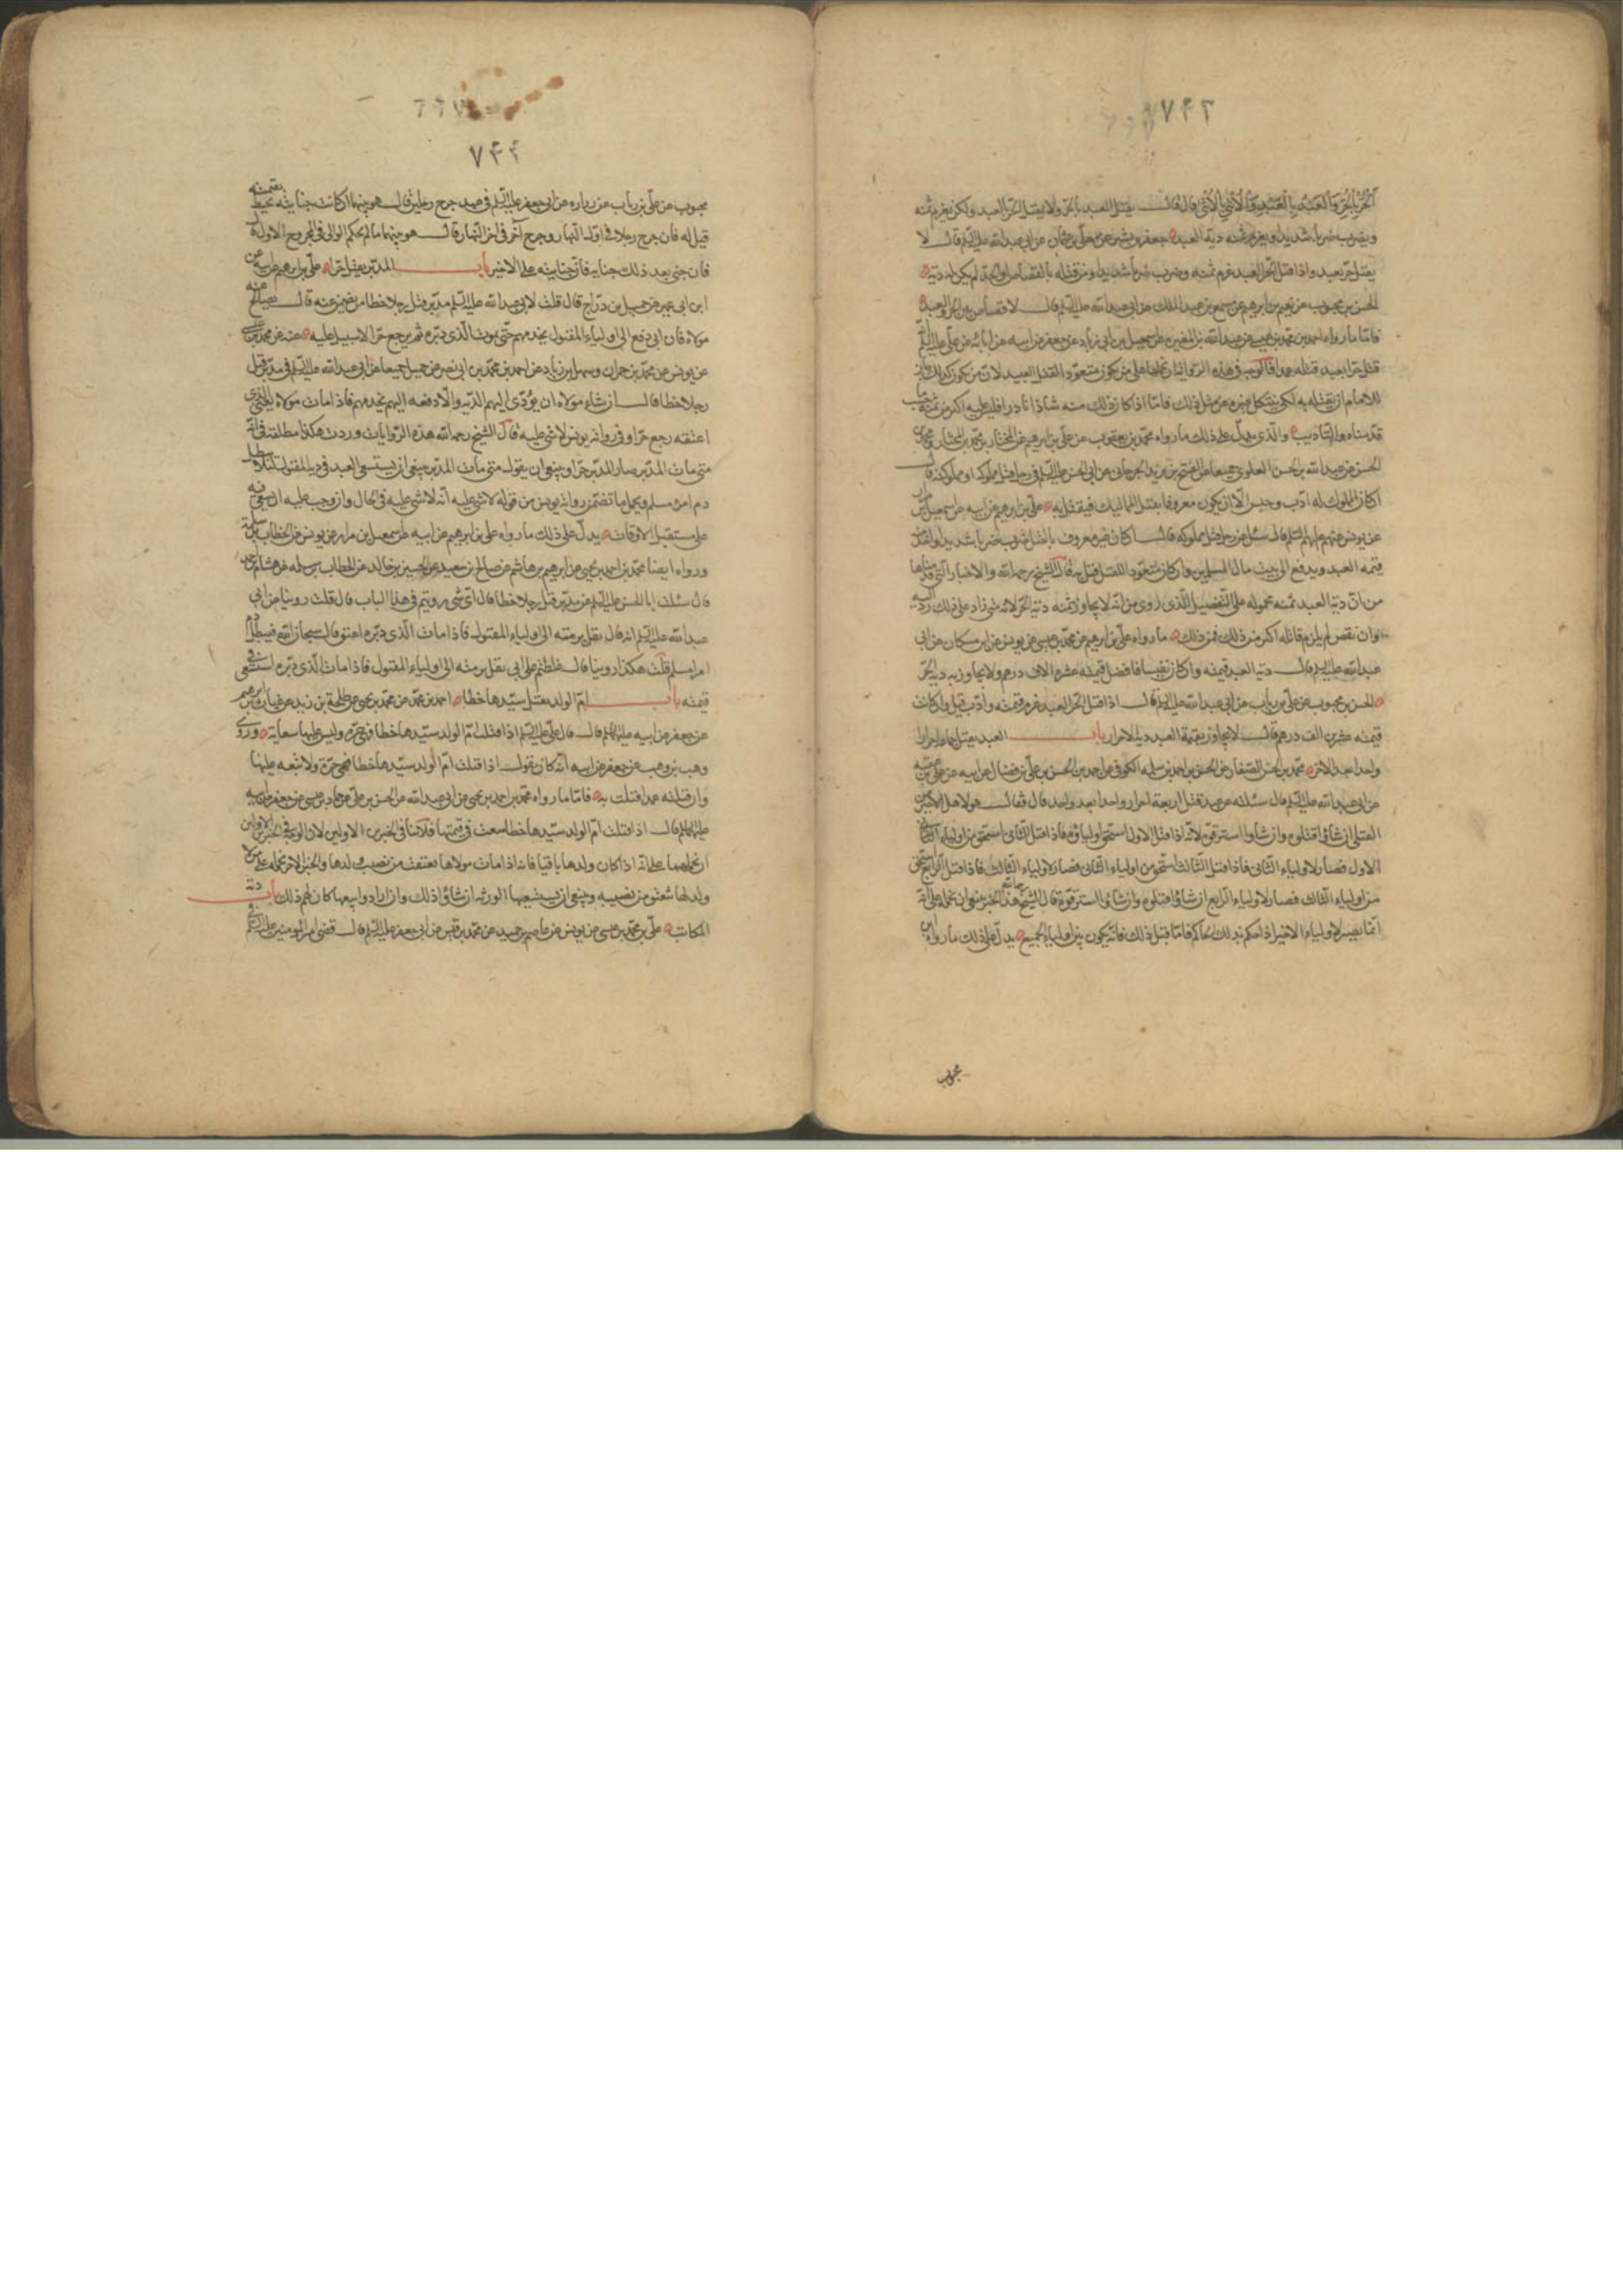 ٧٤٣
الحُرُّ بِالحُرِّ وَالعَبْدُ بِالعَبْدِ وَالأُنْثى بِالأُنْثى قال فقال يقتل العبد بالحر ولا يقتل الحر بالعبد ولكن يغرم ثمنه
ويضرب ضربا شديدا ويغرم ثمنه دية العبد جعفر بن بشير عن معلى بن عثمان عن ابى عبد الله عليه السلم قال لا
يقتل حر بعبد واذا قتل الحر العبد غرم ثمنه وضرب ضربا شديدا ومن قتله بالقصاص او الحد لم يكن له دية
الحسن بن محبوب عن نعيم بن ابرهيم عن مسمع بن عبد الملك عن ابى عبد الله عليه السلم قال لا قصاص بين الحر والعبد
فاما ما رواه احمد بن محمد بن عيسى عن عبد الله بن المغيره عن اسمعيل بن ابى زياد عن جعفر عن ابيه عن ابائه عن علي عليه السلم
قتل حرا بعبد قتله عمدا فالوجه فى هذه الرواية ان نحملها على من يكون متعود القتل العبيد لان من يكون كذلك جاز
للامام ان يقتله به لكى ينكل غيره عن مثل ذلك فاما اذا كان ذلك منه شاذا نادرا فليس عليه اكثر من ثمنه حسب
قدمناه والتاديب والذى يدل على ذلك ما رواه محمد بن يعقوب عن علي بن ابرهيم عن المختار بن محمد بن المختار ومحمد بن
الحسن عن عبد الله بن الحسن العلوى جميعا عن الفتح بن يزيد الجرجانى عن ابى الحسن عليه السلم فى رجل قتل مملوكه او مملوكته قال
ان كان المملوك له ادب وحبس الا ان يكون معروفا بقتل المماليك فيقتل به علي بن ابرهيم عن ابيه عن اسمعيل بن مرار
عن يونس عنهم عليهم السلم قال سئل عن رجل قتل مملوكه قال ان كان غير معروف بالقتل ضرب ضربا شديدا واخذ منه
قيمه العبد ويدفع الى بيت مال المسلمين وان كان متعودا للقتل قتل به قال الشيخ رحمه الله والاخبار التى قدمناها
من ان دية العبد ثمنه محموله على التفصيل الذى روى من انه لا يجاوز بثمنه دية الحر لانه متى زاد على ذلك رد اليه
وان نقص لم يلزم قاتله اكثر من ذلك فمن ذلك ما رواه علي بن ابرهيم عن محمد بن عيسى عن يونس عن ابن مسكان عن ابى
عبد الله عليه السلم قال دية العبد قيمته وان كان نفيسا فافضل قيمته عشره الاف درهم ولا يجاوز به دية الحر
الحسن بن محبوب عن علي بن رئاب عن ابى عبد الله عليه السلم قال اذا قتل الحر العبد غرم قيمته وادب قيل وان كانت
قيمته عشرين الف درهم قال لا يجاوز بقيمة العبد دية الاحرار باب العبد يقتل جماعة احرار
واحدا بعد الاخر محمد بن الحسن الصفار عن الحسن بن احمد بن سلمه الكوفى عن احمد بن الحسن بن علي بن فضال عن ابيه عن علي بن عقبه
عن ابى عبد الله عليه السلم قال سئلته عن عبد قتل اربعة احرار واحدا بعد واحد قال فقال هو لاهل الاخير من
القتلى ان شاؤا قتلوه وان شاؤا استرقوه لانه اذا قتل الاول استحق اولياؤه فاذا قتل الثانى استحق من اولياء
الاول فصار لاولياء الثانى فاذا قتل الثالث استحق من اولياء الثانى فصار لاولياء الثالث فاذا قتل الرابع استحق
من اولياء الثالث فصار لاولياء الرابع ان شاؤا قتلوه وان شاؤا استرقوه قال الشيخ هذا الخبر ينبغى ان نحمله على انه
انما يصير لاولياء الاخير اذا حكم بذلك الحاكم فاما قبل ذلك فانه يكون بين اولياء الجميع يدل على ذلك ما رواه ابن
محبوب
٧٤٤
محبوب عن علي بن رئاب عن زراره عن ابى جعفر عليه السلم فى عبد جرح رجلين قال هو بينهما ان كانت جنايته تحيط بقيمته
قيل له فان جرح رجلا فى اول النهار وجرح آخر فى اخر النهار قال هو بينهما ما لم يحكم الوالى فى المجروح الاول قال
فان جنى بعد ذلك جنايه فان جنايته على الاخير باب المدبر يقتل حرا علي بن ابرهيم عن ابيه عن
ابن ابى عمير عن جميل بن دراج قال قلت لابى عبد الله عليه السلم مدبر قتل رجلا خطا من يضمن عنه قال يصالح عنه
مولاه فان ابى دفع الى اولياء المقتول يخدمهم حتى يموت الذى دبره ثم يرجع حرا لا سبيل عليه عنه عن محمد بن عيسى
عن يونس عن محمد بن حمران وسهل بن زياد عن احمد بن محمد بن ابى نصر عن جميل جميعا عن ابى عبد الله عليه السلم فى مدبر قتل
رجلا خطا قال ان شاء مولاه ان يؤدى اليهم الدية والا دفعه اليهم يخدمهم فاذا مات مولاه يعنى الذى
اعتقه رجع حرا وفى روايه يونس لا شى عليه قال الشيخ رحمه الله هذه الروايات وردت هكذا مطلقه فى انه
متى مات المدبر صار المدبر حرا وينبغى ان يقول متى مات المدبر ينبغى ان يستسعى العبد فى دية المقتول لئلا يبطل
دم امرئ مسلم ويحمل ما تضمن روايه يونس من قوله لا شى عليه انه لا شى عليه فى الحال وان وجب عليه ان يسعى فيه
على مستقبل الاوقات يدل على ذلك ما رواه علي بن ابرهيم عن ابيه عن اسمعيل بن مرار عن يونس عن الخطاب بن سلمة
ورواه ايضا محمد بن احمد بن يحيى عن ابرهيم بن هاشم عن صالح بن سعيد عن الحسين بن خالد عن الخطاب بن سلمه عن هشام بن احمد
قال سئلت ابا الحسن عليه السلم عن مدبر قتل رجلا خطا قال اى شى رويتم فى هذا الباب قال قلت روينا عن ابى
عبد الله عليه السلم انه قال يتل برمته الى اولياء المقتول فاذا مات الذى دبره اعتق قال سبحان الله فيبطل دم
امرئ مسلم قلت هكذا روينا قال غلطتم على ابى يتل برمته الى اولياء المقتول فاذا مات الذى دبره استسعى فى
قيمته باب ام الولد تقتل سيدها خطا احمد بن محمد عن محمد بن يحيى عن طلحة بن زيد عن غياث بن ابرهيم
عن جعفر عن ابيه عليهما السلم قال قال علي عليه السلم اذا قتلت ام الولد سيدها خطا فهى حره وليس عليها سعاية وروى
وهب بن وهب عن جعفر عن ابيه انه كان يقول اذا قتلت ام الولد سيدها خطا فهى حرة ولا تبعه عليها
وان قتلته عمدا قتلت به فاما ما رواه محمد بن احمد بن يحيى عن ابى عبد الله عن الحسن بن علي عن حماد بن عيسى عن جعفر عن ابيه
عليهما السلم قال اذا قتلت ام الولد سيدها خطا سعت فى قيمتها فلا ينافى الخبرين الاولين لان الوجه فى الخبرين الاولين
ان نحملهما على انه اذا كان ولدها باقيا فانه اذا مات مولاها تعتق من نصيب ولدها والخبر الاخر نحمله على من لا
ولد لها تنعتق من نصيبه وينبغى ان يستسعيها الورثه ان شاؤا ذلك وان ارادوا بيعها كان لهم ذلك باب دية
المكاتب علي عن محمد بن عيسى عن يونس عن عاصم بن حميد عن محمد بن قيس عن ابى جعفر عليه السلم قال قضى امير المؤمنين عليه السلم فى